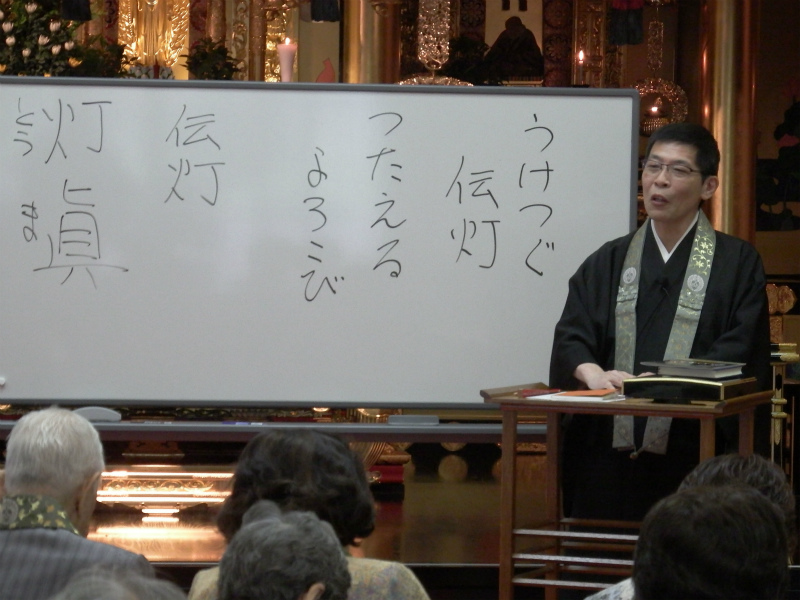 うけつぐ
伝灯
つたえる
よろこび
伝灯
灯
とう
眞
まこと